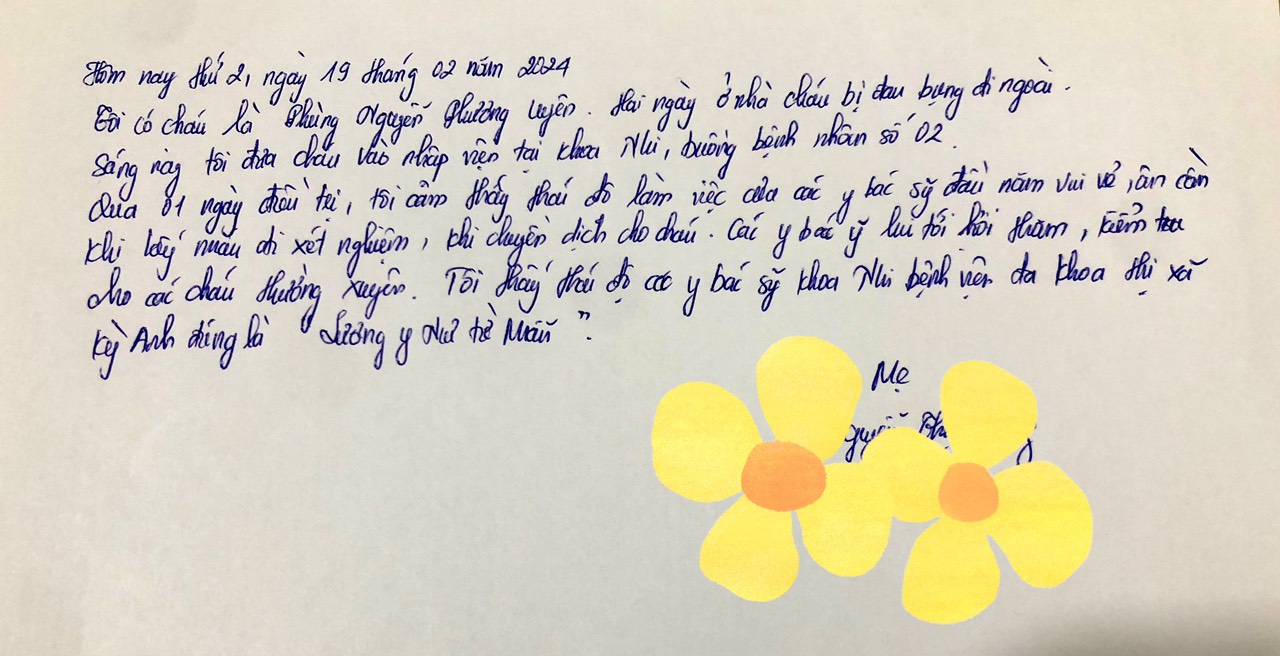 Hôm nay thứ 2, ngày 19 tháng 02 năm 2024
Tôi có cháu là Phùng Nguyễn Phương Uyên. Hai ngày ở nhà cháu bị đau bụng đi ngoài.
Sáng này tôi đưa cháu vào nhập viện tại khoa Nhi, buồng bệnh nhân số 02.
Qua 01 ngày điều trị, tôi cảm thấy thái độ làm việc của các y bác sỹ đầu năm vui vẻ, ân cần
khi lấy máu đi xét nghiệm, khi chuyền dịch cho cháu. Các y bác ỹ lui tới hỏi thăm, kiểm tra
cho các cháu thường xuyên. Tôi thấy thái độ các y bác sỹ khoa Nhi bệnh viện đa khoa thị xã
Kỳ Anh đúng là "Lương y Như từ Mẫu".
Mẹ